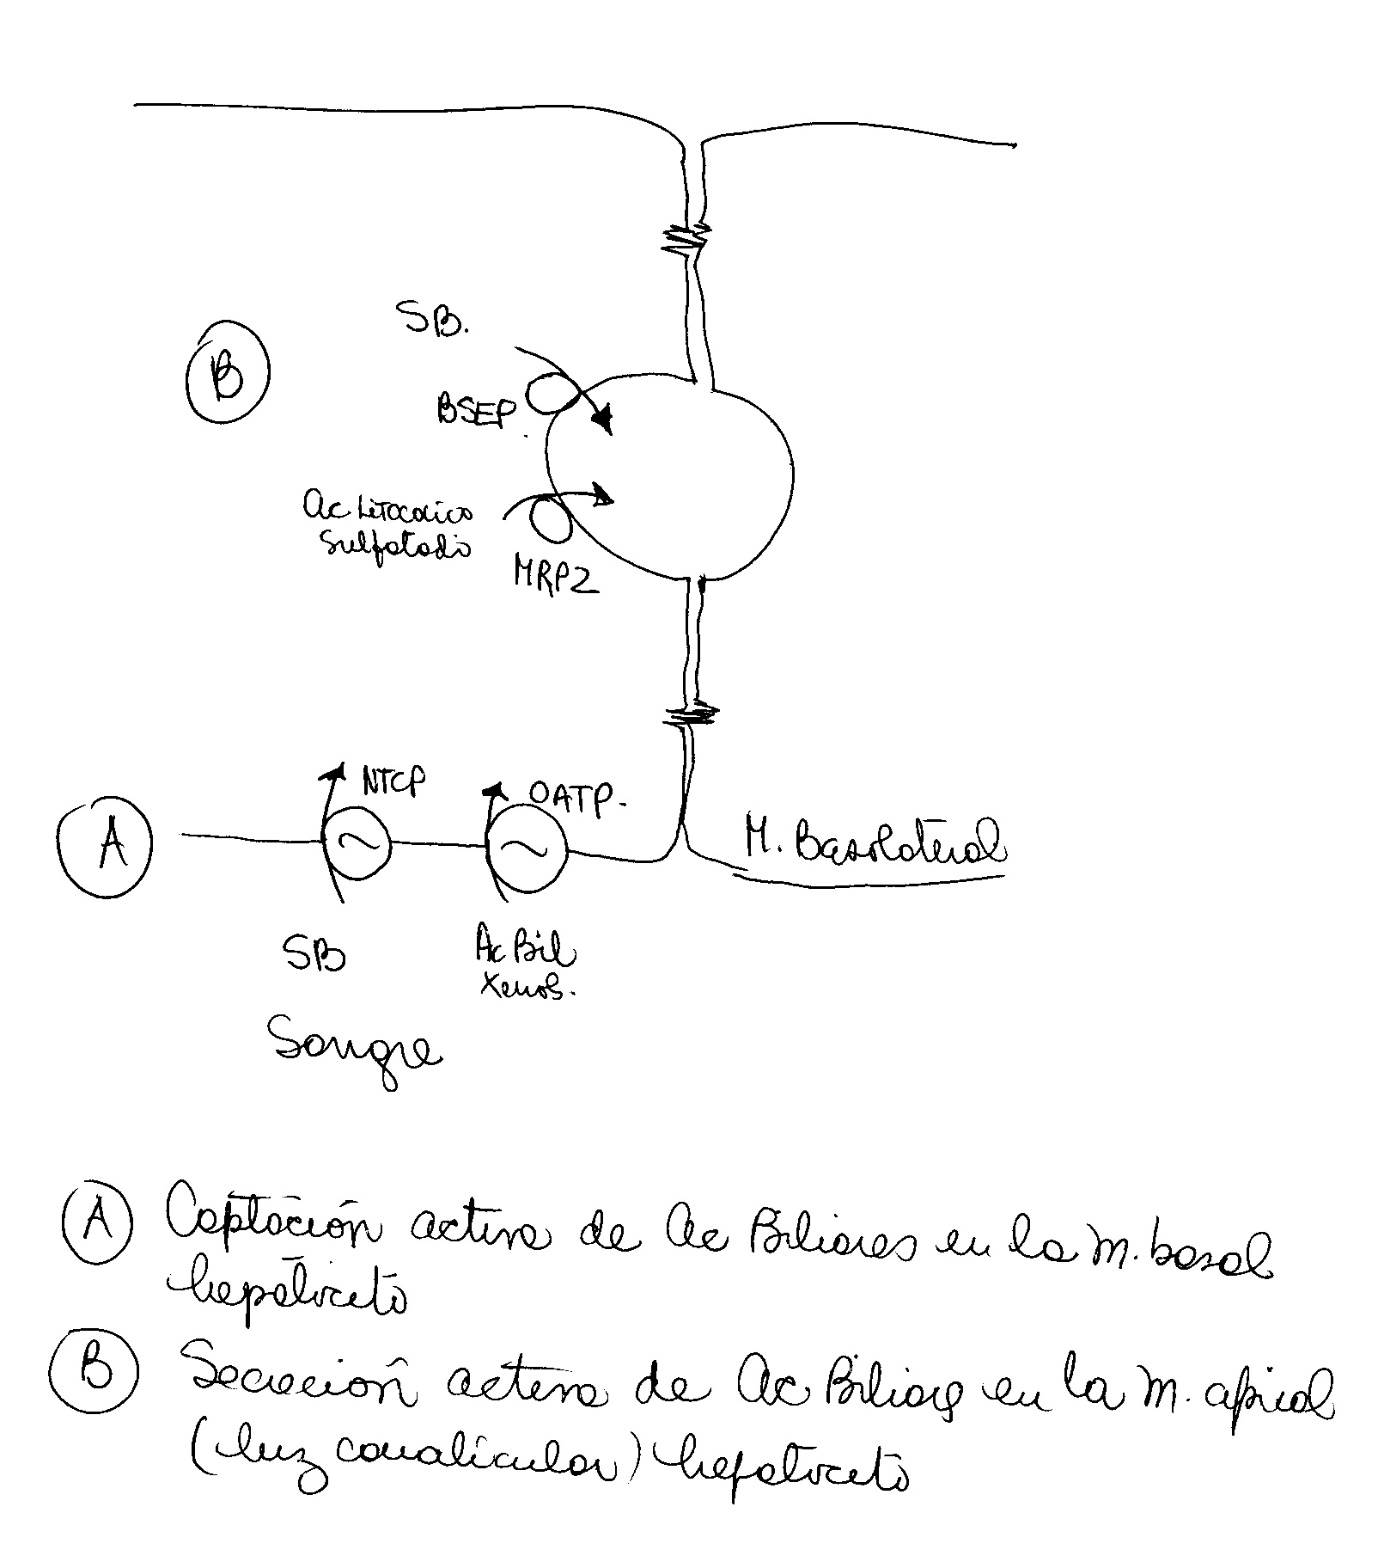 SB.
B
BSEP.
Ac Litocolico
Sulfatado
MRP2
NTCP
OATP.
A
M. Basolateral
SB
Ac Bil
Xenob.
Sangre
A Captación activa de Ac Biliares en la m. basal
hepatocito
B Secreción activa de Ac Biliares en la m. apical
(luz canalicular) hepatocito